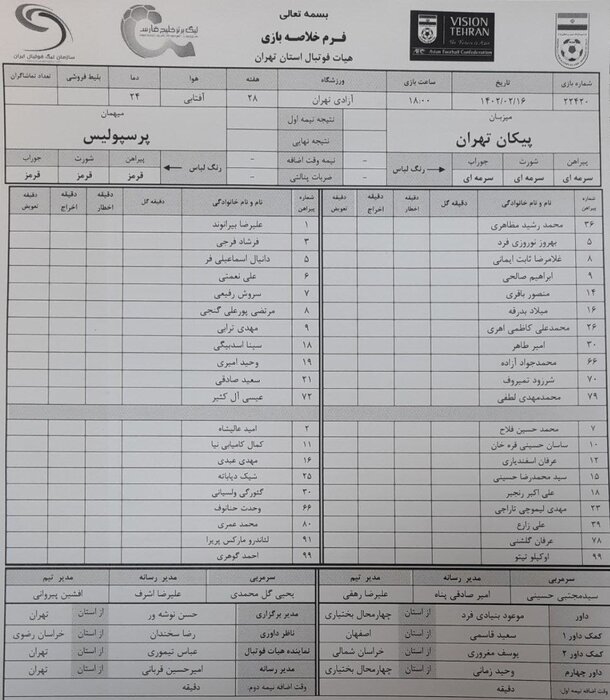 بسمه تعالی
فرم خلاصه بازی
هیات فوتبال استان تهران
سازمان لیگ فوتبال ایران
لیگ برتر خلیج فارس
VISION
TEHRAN
Asian Football Confederation
شماره بازی تاریخ ساعت بازی ورزشگاه هفته هوا دما بلیط فروشی تعداد تماشاگران
۲۲۴۲۰ ۱۴۰۲/۰۲/۱۶ ۱۸:۰۰ آزادی تهران ۲۸ آفتابی ۲۴
میزبان نتیجه نیمه اول میهمان
پیکان تهران نتیجه نهایی پرسپولیس
پیراهن شورت جوراب رنگ لباس نیمه وقت اضافه - - رنگ لباس پیراهن شورت جوراب
سرمه ای سرمه ای سرمه ای ضربات پنالتی - - قرمز قرمز قرمز
شماره پیراهن نام و نام خانوادگی دقیقه گل دقیقه اخطار دقیقه اخراج دقیقه تعویض شماره پیراهن نام و نام خانوادگی دقیقه گل دقیقه اخطار دقیقه اخراج دقیقه تعویض
۳۶ محمد رشید مظاهری ۱ علیرضا بیرانوند
۵ بهروز نوروزی فرد ۳ فرشاد فرجی
۸ غلامرضا ثابت ایمانی ۵ دانیال اسماعیلی فر
۹ ابراهیم صالحی ۶ علی نعمتی
۱۴ منصور باقری ۷ سروش رفیعی
۱۶ میلاد بدرقه ۸ مرتضی پورعلی گنجی
۲۶ محمدعلی کاظمی اهری ۹ مهدی ترابی
۳۰ امیر طاهر ۱۸ سینا اسدبیگی
۶۶ محمدجواد آزاده ۱۹ وحید امیری
۷۰ شررزود تمیروف ۲۱ سعید صادقی
۷۹ محمدمهدی لطفی ۷۲ عیسی آل کثیر
۷ محمد حسین فلاح ۲ امید عالیشاه
۱۰ ساسان حسینی فره خان ۱۱ کمال کامیابی نیا
۱۲ عرفان اسفندیاری ۱۶ مهدی عبدی
۱۵ سید محمدرضا حسینی ۲۵ شیک دیاباته
۱۸ علی اکبر رنجبر ۳۰ گئورگی ولسیانی
۲۳ مهدی لیموچی تاراجی ۶۶ وحدت حنانوف
۳۹ علی زارع ۸۰ محمد عمری
۷۸ عرفان گلشنی ۹۱ لئاندرو مارکس پریرا
۹۹ اوکیلو تیتو ۹۹ احمد گوهری
سرمربی مدیر رسانه مدیر تیم سرمربی مدیر رسانه مدیر تیم
سیدمجتبی حسینی امیر صادقی پناه علیرضا رهقی یحیی گل محمدی علیرضا اشرف افشین پیروانی
داور موعود بنیادی فرد از استان چهارمحال بختیاری مدیر برگزاری حسن نوشه ور از استان تهران
کمک داور ۱ سعید قاسمی از استان اصفهان ناظر داوری رضا سخندان از استان خراسان رضوی
کمک داور ۲ یوسف مغروری از استان خراسان شمالی نماینده هیات فوتبال عباس تیموری از استان تهران
داور چهارم وحید زمانی از استان چهارمحال بختیاری مدیر رسانه امیرحسین قربانی از استان تهران
وقت اضافه نیمه اول: دقیقه وقت اضافه نیمه دوم: دقیقه